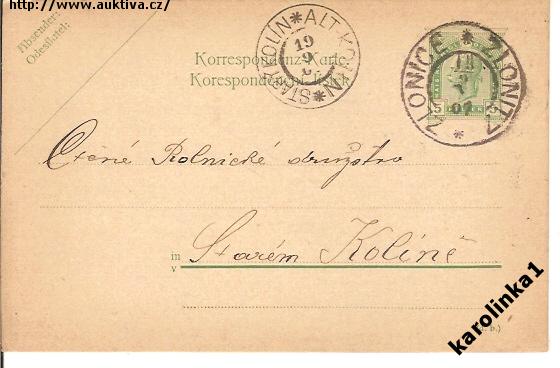 http://www.auktiva.cz/
Absender:
Odesílatel:
Korrespondenz-Karte.
Korespondenční lístek
STARÝ KOLIN * ALT-KOLIN *
19
9
ZLONICE * ZLONITZ *
18
07
5
Ctěné Rolnické družstvo
in
v
Starém Kolíně
karolinka1